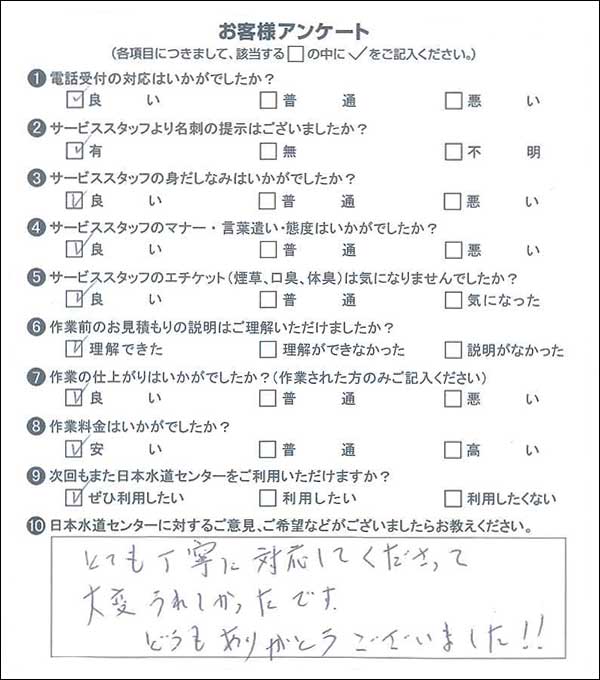 お客様アンケート
(各項目につきまして、該当する□の中に✓をご記入ください。)
❶電話受付の対応はいかがでしたか？
☑良い □普通 □悪い
❷サービススタッフより名刺の提示はございましたか？
☑有 □無 □不明
❸サービススタッフの身だしなみはいかがでしたか？
☑良い □普通 □悪い
❹サービススタッフのマナー・言葉遣い・態度はいかがでしたか？
☑良い □普通 □悪い
❺サービススタッフのエチケット(煙草、口臭、体臭)は気になりませんでしたか？
☑良い □普通 □気になった
❻作業前のお見積もりの説明はご理解いただけましたか？
☑理解できた □理解ができなかった □説明がなかった
❼作業の仕上がりはいかがでしたか？(作業された方のみご記入ください)
☑良い □普通 □悪い
❽作業料金はいかがでしたか？
☑安い □普通 □高い
❾次回もまた日本水道センターをご利用いただけますか？
☑ぜひ利用したい □利用したい □利用したくない
❿日本水道センターに対するご意見、ご希望などがございましたらお教えください。
とても丁寧に対応してくださって
大変うれしかったです.
どうもありがとうございました!!